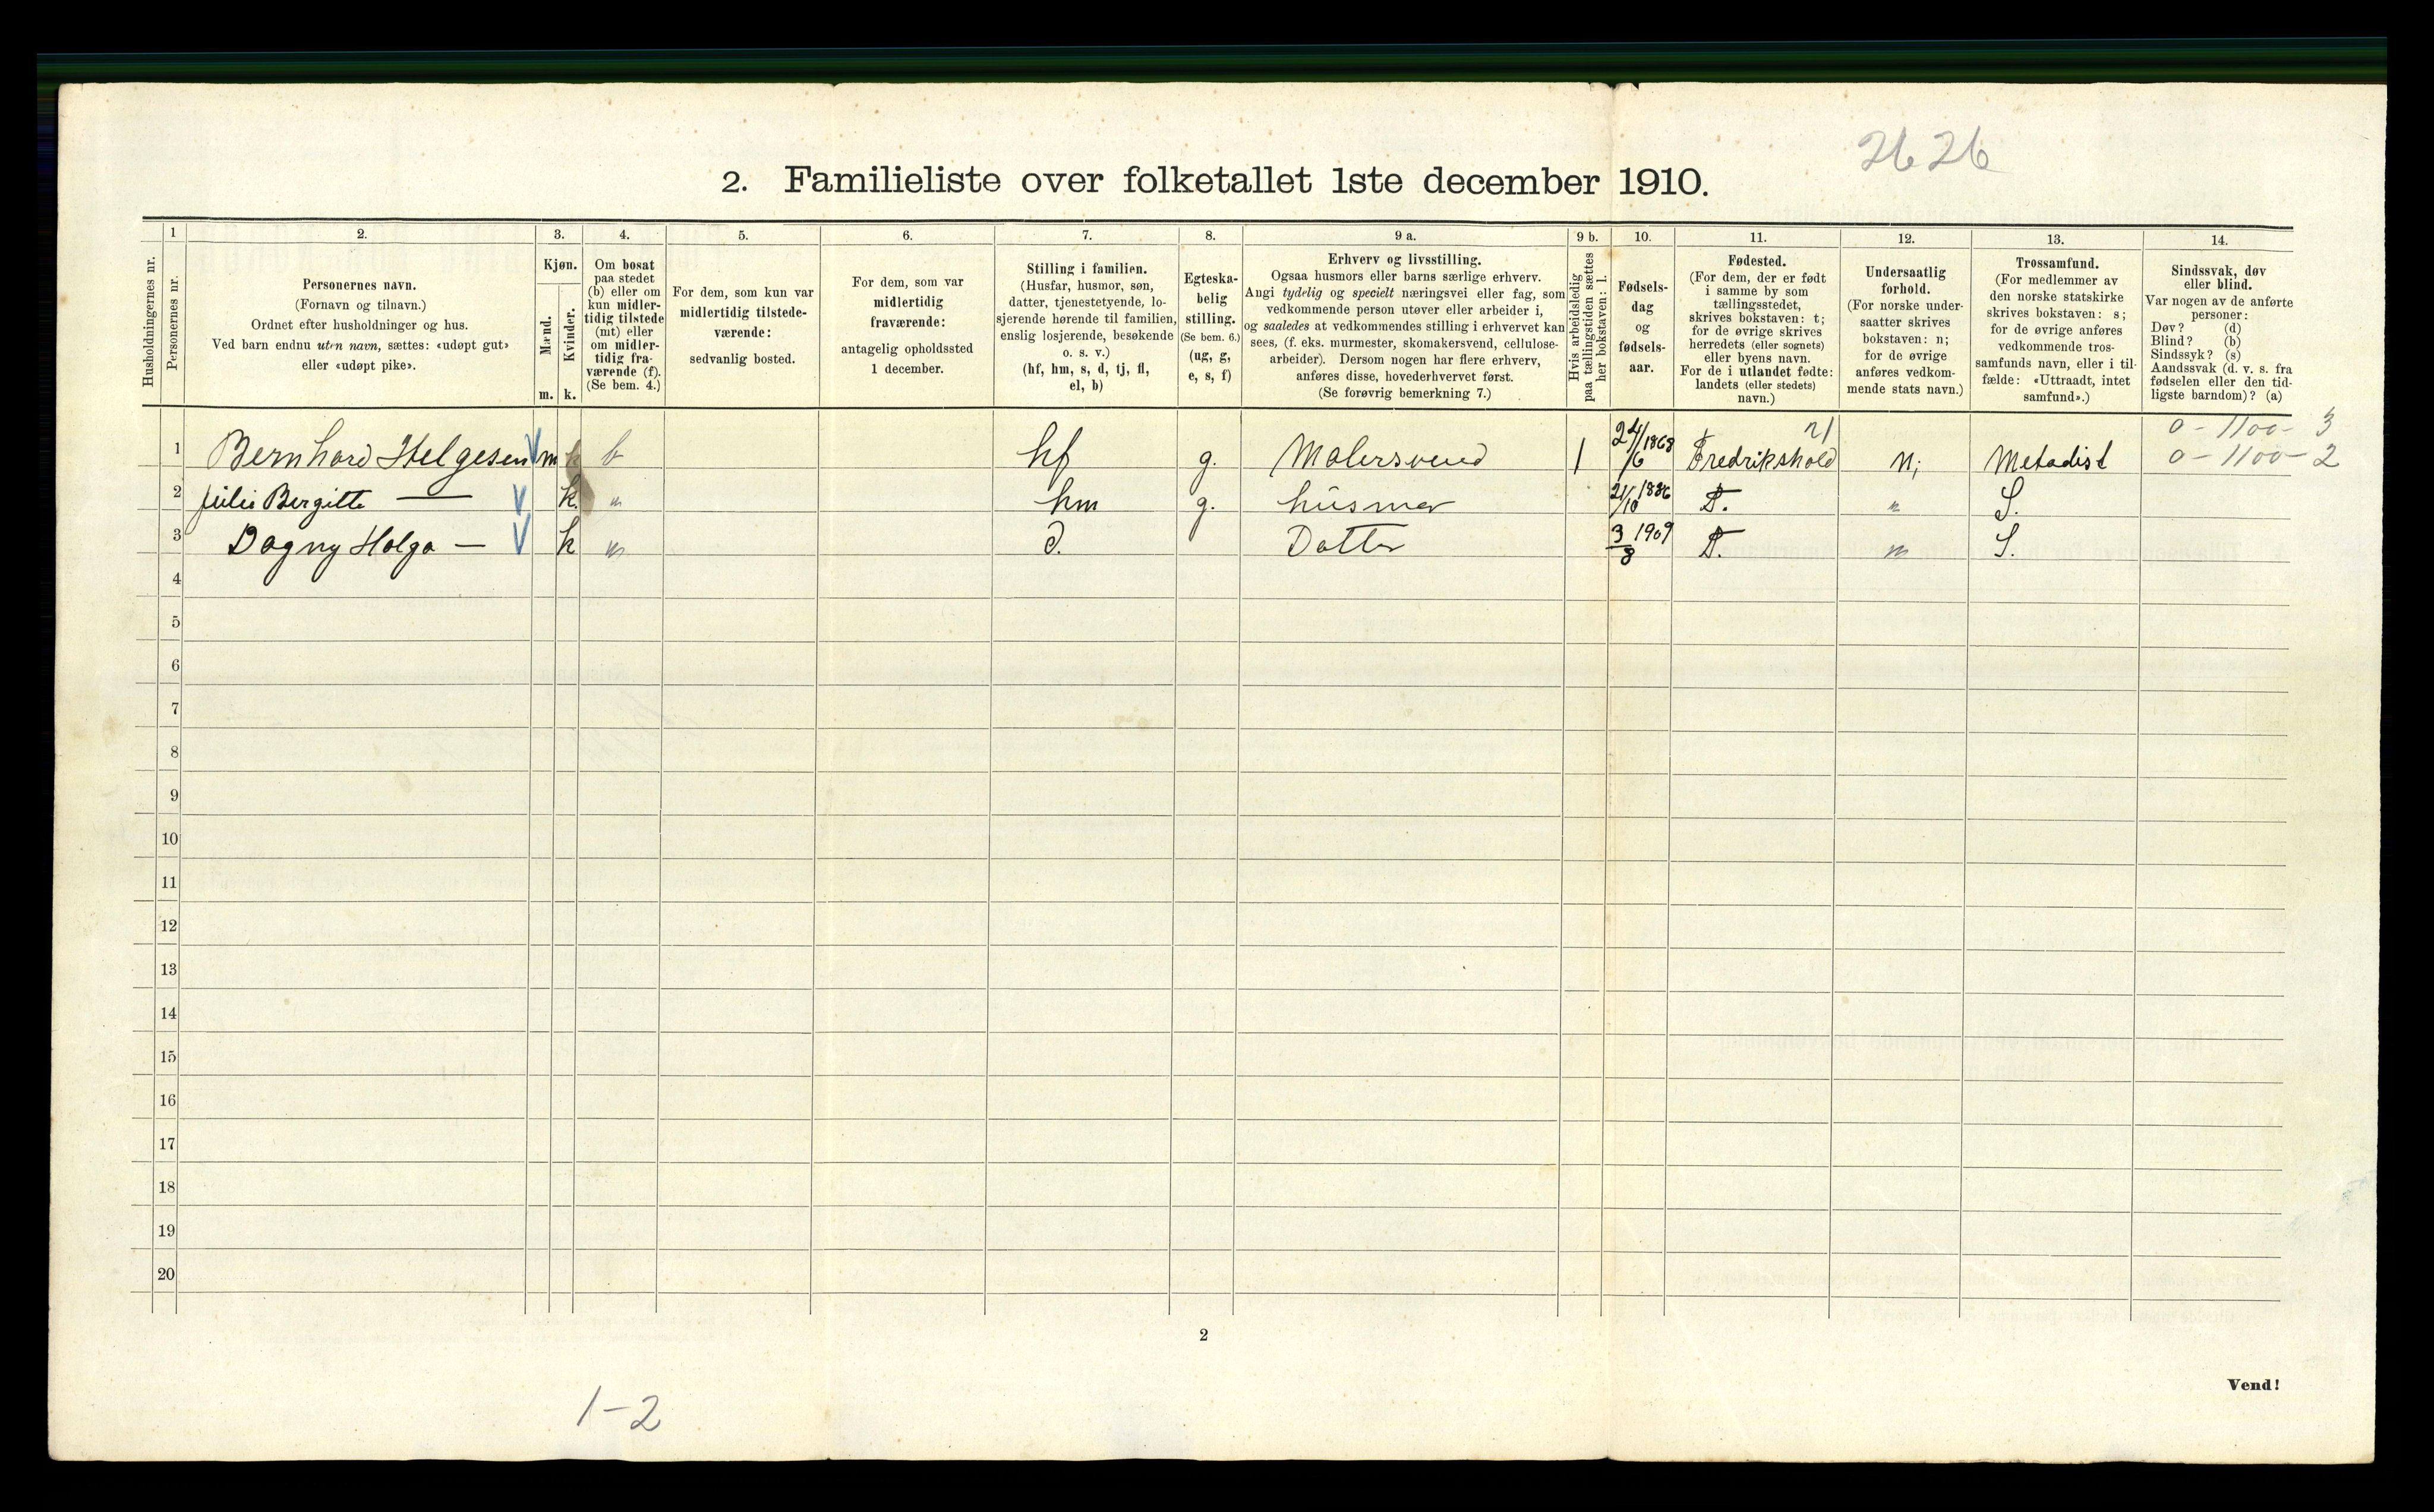 2626
2. Familieliste over folketallet 1ste december 1910.
1 2. 3. 4. 5. 6. 7. 8. 9 a. 9 b. 10. 11. 12. 13. 14.
Husholdningernes nr.
Personernes nr.
Personernes navn.
(Fornavn og tilnavn.)
Ordnet efter husholdninger og hus.
Ved barn endnu uten navn, sættes: «udøpt gut»
eller «udøpt pike».
Kjøn.
Mænd.
Kvinder.
m. k.
Om bosat
paa stedet
(b) eller om
kun midler-
tidig tilstede
(mt) eller
om midler-
tidig fra-
værende (f).
(Se bem. 4.)
For dem, som kun var
midlertidig tilstede-
værende:
sedvanlig bosted.
For dem, som var
midlertidig
fraværende:
antagelig opholdssted
1 december.
Stilling i familien.
(Husfar, husmor, søn,
datter, tjenestetyende, lo-
sjerende hørende til familien,
enslig losjerende, besøkende
o. s. v.)
(hf, hm, s, d, tj, fl,
el, b)
Egteska-
belig
stilling.
(Se bem. 6.)
(ug, g,
e, s, f)
Erhverv og livsstilling.
Ogsaa husmors eller barns særlige erhverv.
Angi tydelig og specielt næringsvei eller fag, som
vedkommende person utøver eller arbeider i,
og saaledes at vedkommendes stilling i erhvervet kan
sees, (f. eks. murmester, skomakersvend, cellulose-
arbeider). Dersom nogen har flere erhverv,
anføres disse, hovederhvervet først.
(Se forøvrig bemerkning 7.)
Hvis arbeidsledig
paa tællingstiden sættes
her bokstaven: l.
Fødsels-
dag
og
fødsels-
aar.
Fødested.
(For dem, der er født
i samme by som
tællingsstedet,
skrives bokstaven: t;
for de øvrige skrives
herredets (eller sognets)
eller byens navn.
For de i utlandet fødte:
landets (eller stedets)
navn.)
Undersaatlig
forhold.
(For norske under-
saatter skrives
bokstaven: n;
for de øvrige
anføres vedkom-
mende stats navn.)
Trossamfund.
(For medlemmer av
den norske statskirke
skrives bokstaven: s;
for de øvrige anføres
vedkommende tros-
samfunds navn, eller i til-
fælde: «Uttraadt, intet
samfund».)
Sindssvak, døv
eller blind.
Var nogen av de anførte
personer:
Døv? (d)
Blind? (b)
Sindssyk? (s)
Aandssvak (d. v. s. fra
fødselen eller den tid-
ligste barndom)? (a)
0 - 1100 - 3
1 Bernhard Helgesen m b hf g. Malersvend l 24/6 1868 Fredrikshald n; Metodist 0 - 1100 - 2
2 Julie Bergitte — k " hm g. husmor 21/10 1886 T. " S.
3 Dagny Helga — k " d. Datter 3/8 1909 T. " S.
4
5
6
7
8
9
10
11
12
13
14
15
16
17
18
19
20
2
Vend!
1-2